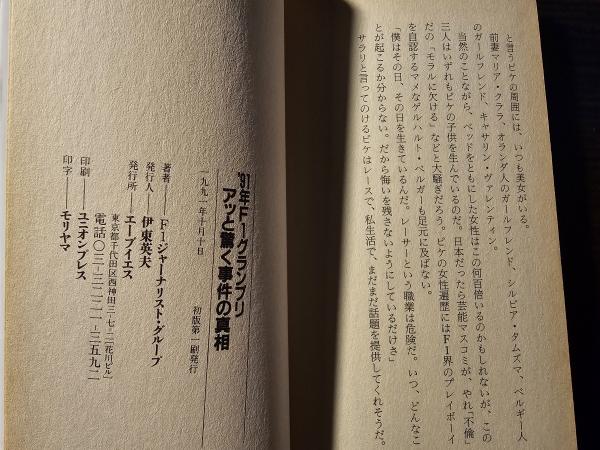 と言うピケの周囲には、いつも美女がいる。
前妻マリア・クララ、オランダ人のガールフレンド、シルビア・タムズマ、ベルギー人
のガールフレンド、キャサリン・ヴァレンティン。
当然のことながら、ベッドをともにした女性はこの何百倍いるのかもしれないが、この
三人はいずれもピケの子供を生んでいるのだ。日本だったら芸能マスコミが、やれ「不倫」
だの「モラルに欠ける」などと大騒ぎだろう。ピケの女性遍歴にはF1界のプレイボーイ
を自認するマメなゲルハルト・ベルガーも足元に及ばない。
「僕はその日、その日を生きているんだ。レーサーという職業は危険だ。いつ、どんなこ
とが起こるか分からない。だから悔いを残さないようにしているだけさ」
サラリと言ってのけるピケはレースで、私生活で、まだまだ話題を提供してくれそうだ。
'91年F1グランプリ
アッと驚く事件の真相
一九九一年十月十日
初版第一刷発行
著者―F1ジャーナリスト・グループ
発行人―伊東英夫
発行所―エーブイエス
東京都千代田区西神田三-七-二(花川ビル)
電話〇三-三二二一-二五九二
印刷―ユニオンプレス
印字―モリヤマ